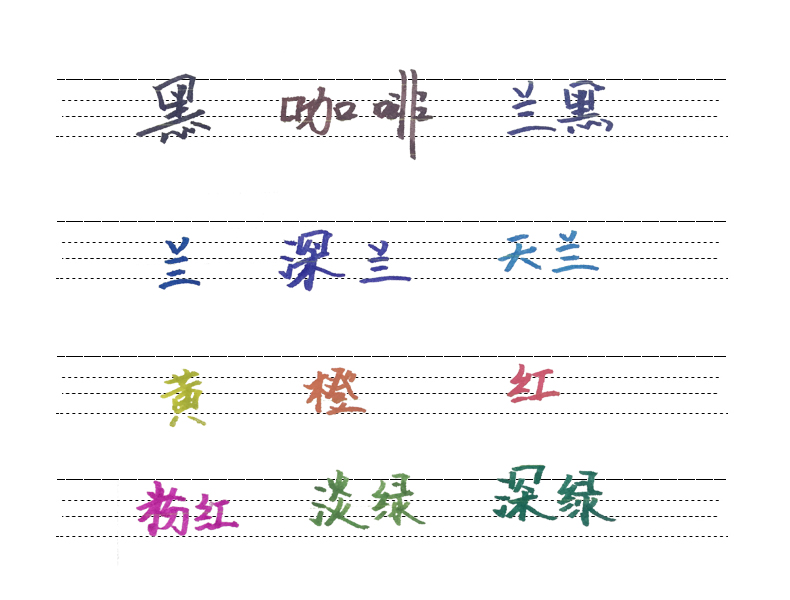 黑 咖啡 兰黑
兰 深兰 天兰
黄 橙 红
粉红 淡绿 深绿